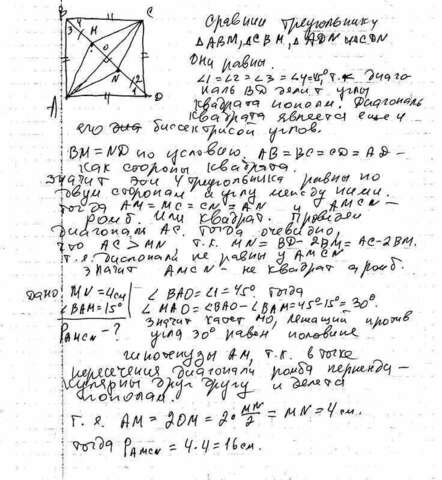 B C
3 4 M
O
N 1 2
A D
Сравним треугольники
△ABM, △CBM, △ADN и △CDN
Они равны.
∠1=∠2=∠3=∠4=45° т.к. диаго
наль BD делит углы
квадрата пополам. Диагональ
квадрата является еще и
его биссектрисой углов.
BM=ND по условию AB=BC=CD=AD -
как стороны квадрата.
Значит эти 4 треугольника равны по
двум сторонам и углу между ними.
тогда AM=MC=CN=AN и AMCN -
ромб. Или квадрат. Проведем
диагональ AC. Тогда очевидно,
что AC>MN, т.к. MN=BD-2BM=AC-2BM.
т.е. диагонали не равны у AMCN
Значит AMCN - не квадрат а ромб.
Дано MN=4см ∠BAO=∠1=45°. тогда
∠BAM=15° ∠MAO=∠BAO-∠BAM=45°-15°=30°.
P AMCN - ? Значит катет MO, лежащий против
угла 30° равен половине
гипотенузы AM, т.к. в точке
пересечения диагонали ромба перпенди-
кулярны друг другу и делятся
пополам.
т.е. AM=2OM=2·MN/2=MN=4см.
тогда P AMCN=4·4=16см.